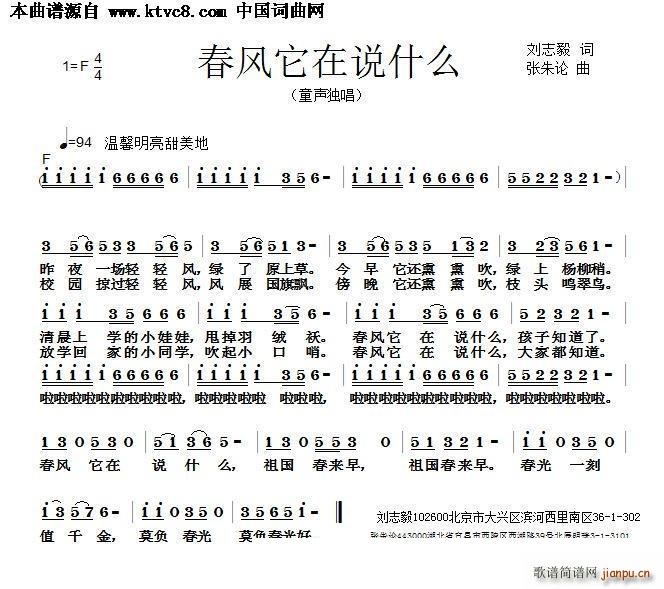 本曲谱源自 www.ktvc8.com 中国词曲网
春风它在说什么
刘志毅 词
1=F 4/4
张朱论 曲
（童声独唱）
♩=94 温馨明亮甜美地
F
(i i i i i 6 6 6 6 6 | i i i i i 3 5 6 - | i i i i i 6 6 6 6 6 | 5 5 2 2 3 2 1 - )|
3 5 6 5 3 3 5 6 5 | 3 5 6 5 1 3 - | 3 5 6 5 3 3 1 3 2 | 3 2 3 5 6 1 - |
昨 夜 一场轻 轻 风，绿 了 原上草。今 早 它还熏 熏 吹，绿 上 杨柳稍。
校 园 掠过轻 轻 风，风 展 国旗飘。傍 晚 它还熏 熏 吹，枝 头 鸣翠鸟。
清晨上 学的小娃娃，甩掉羽 绒 袄。 春风它 在 说什么，孩子知道了。
放学回 家的小同学，吹起小 口 哨。 春风它 在 说什么，大家都知道。
i i i i i 6 6 6 6 6 | i i i i i 3 5 6 - | i i i i i 6 6 6 6 6 | 5 5 2 2 3 2 1 - |
啦啦啦啦啦啦啦啦啦啦，啦啦啦啦啦 啦啦啦，啦啦啦啦啦啦啦啦啦啦，啦啦啦啦啦啦啦。
1 3 0 5 3 0 | 5 1 3 6 5 - | 1 3 0 5 5 3 0 | 5 1 3 2 1 0 | i i 0 1 5 0 |
春风 它在 说 什 么， 祖国 春来早， 祖国春来早。 春光 一刻
i 3 5 7 6 - | i i 0 3 5 0 | 3 5 0 5 6 i - ‖
值 千 金，莫负 春光 莫负春光好。
刘志毅102600北京市大兴区滨河西里南区36-1-302
歌谱简谱网
jianpu.cn